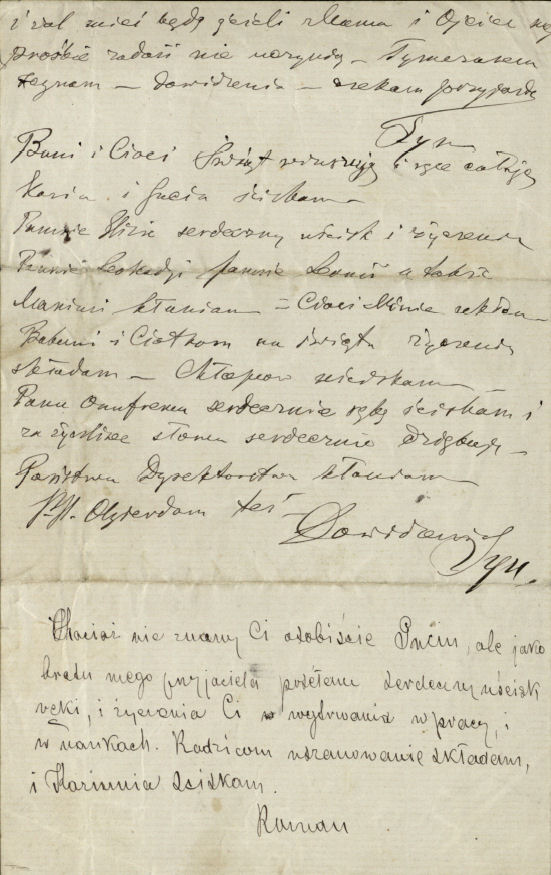 i żal mieć będą jeżeli Mama i Ojciec
prośbie zadość nie uczynią — Tymczasem
żegnam — dowidzenia — czekam przyjazdu
Syn
Buni i Cioci Świąt i ręce całuję
Kazia i Gucia ściskam
Pannie serdeczny uścisk i życzenia
Pannie Leokadji pannie a także
kłaniam = Cioci
Babuni i Ciotkom na święta życzenia
składam — Chłopców uściskam —
Panu Onufremu serdecznie rękę ściskam i
za życzliwe słowa serdecznie dziękuję —
Państwu Dyrektorstwu kłaniam
P.P. Olgierdom też —
Dowidzenia
Syn.
Chociaż nie znamy Ci osobiście, ale jako
bratu mego przyjaciela posełam serdeczny uścisk
ręki, i życzenia Ci wytrwania w pracy, i
w naukach. Rodzicom uszanowanie składam,
i Kaziunia sciskam.
Roman